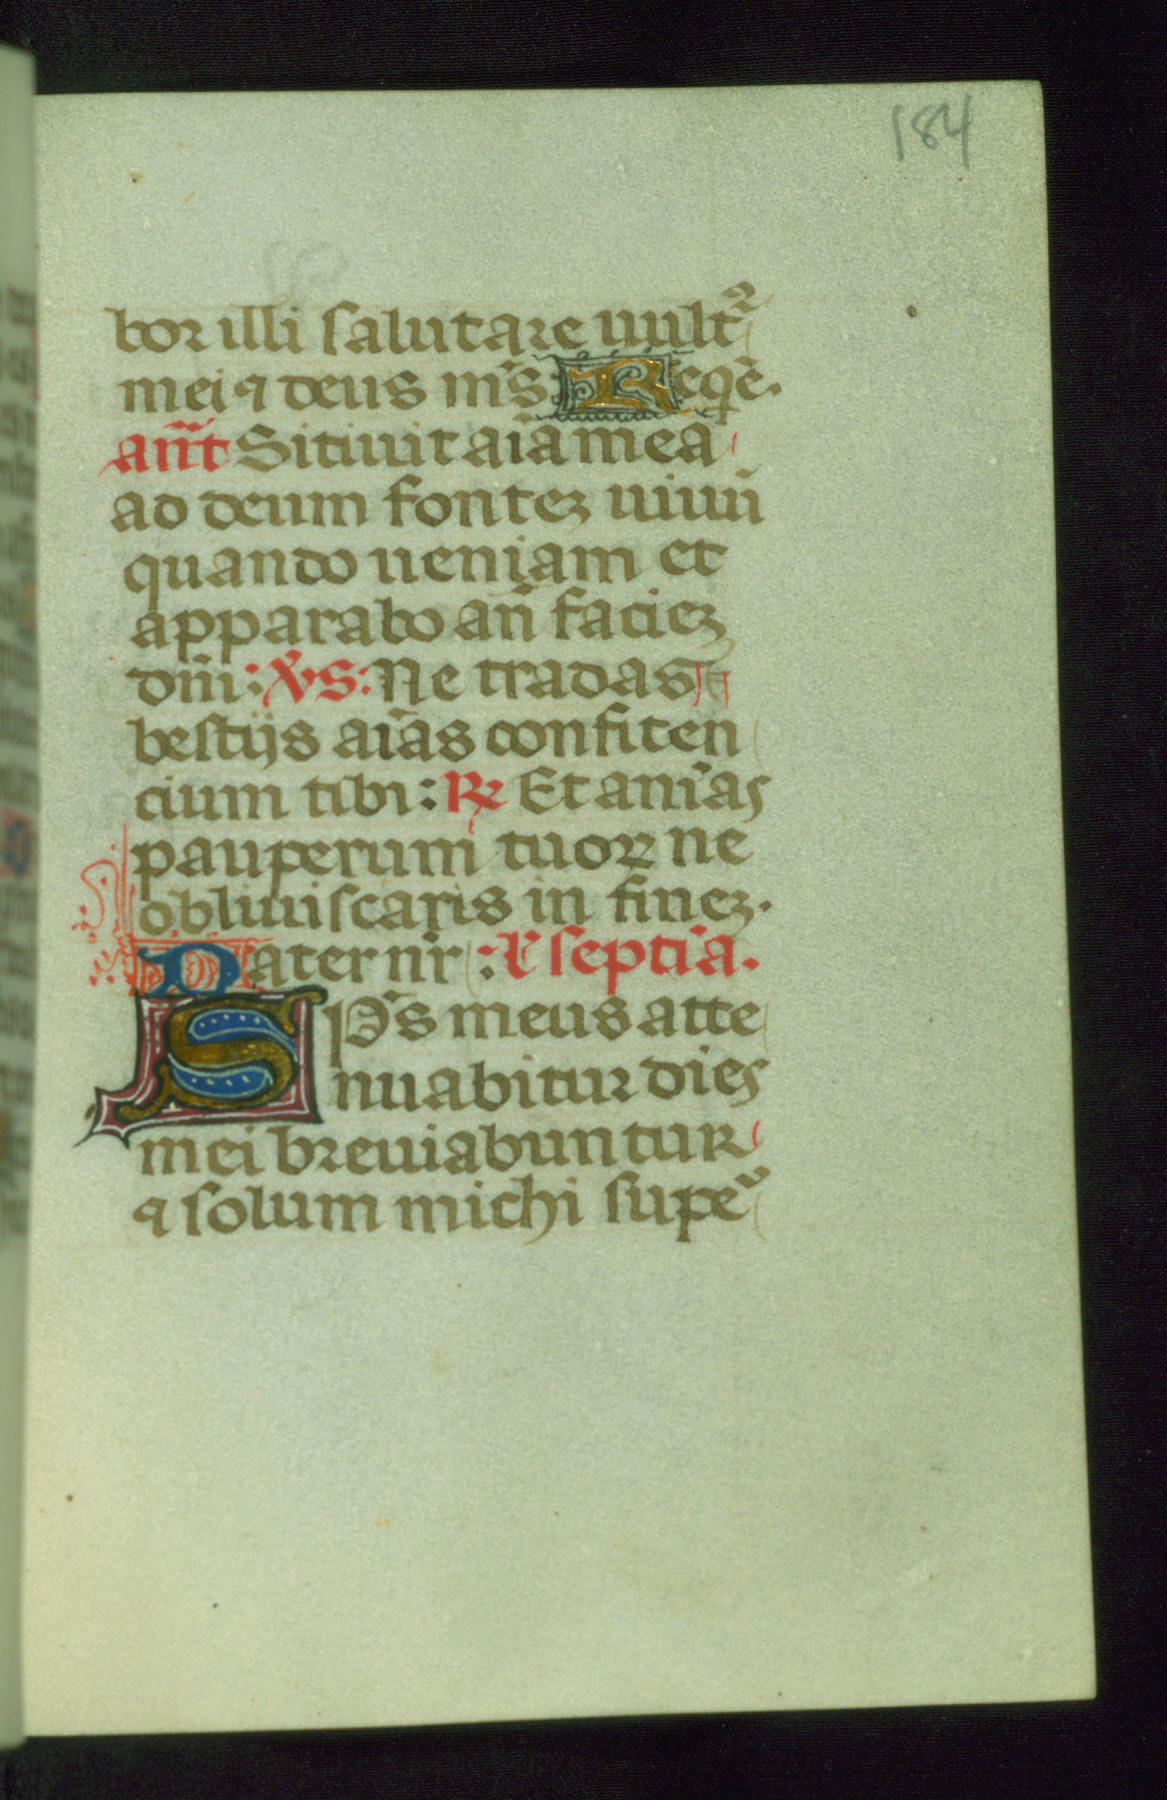 184
bor illi salutare uult᷑
mei ⁊ deus m̃s: Req̃e.
añt Sitiuit aĩa mea
ad deum fontez uiuũ
quando ueniam et
apparabo añ faciez
dñi: V̾s: Ne tradas
bestijs aĩas confiten
cium tibi: ℟ Et anĩas
pauperum tuoꝝ ne
obliuiscaris in finez.
Pater nr̃: Ł septĩa.
SPs̃ meus atte
nuabitur dies
mei breuiabuntur
⁊ solum michi supe᷑